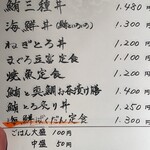 鮪三種丼 1.480
海鮮丼(鮪といろいろ) 1.300
ねぎとろ丼 1.200
まぐろ宝定食 1.100
焼魚定食 1.200
鮪と真鯛のお茶漬け膳 1.400
鮪とろ炙り丼 1.250
海鮮ばくだん定食 1.300
ごはん大盛 100円
中盛 50円